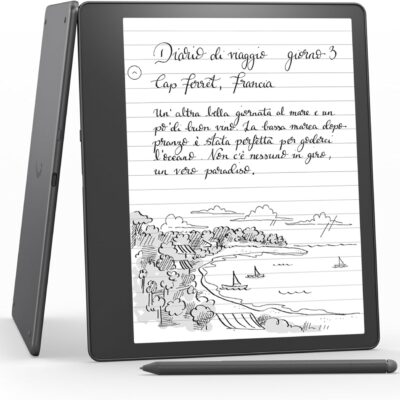 Diario di viaggio giorno 3
Cap Ferret, Francia
Un' altra bella giornata al mare e un
po' di buon vino. La bassa marea dopo-
pranzo è stata perfetta per goderci
l'oceano. Non c'è nessuno in giro,
un vero paradiso.